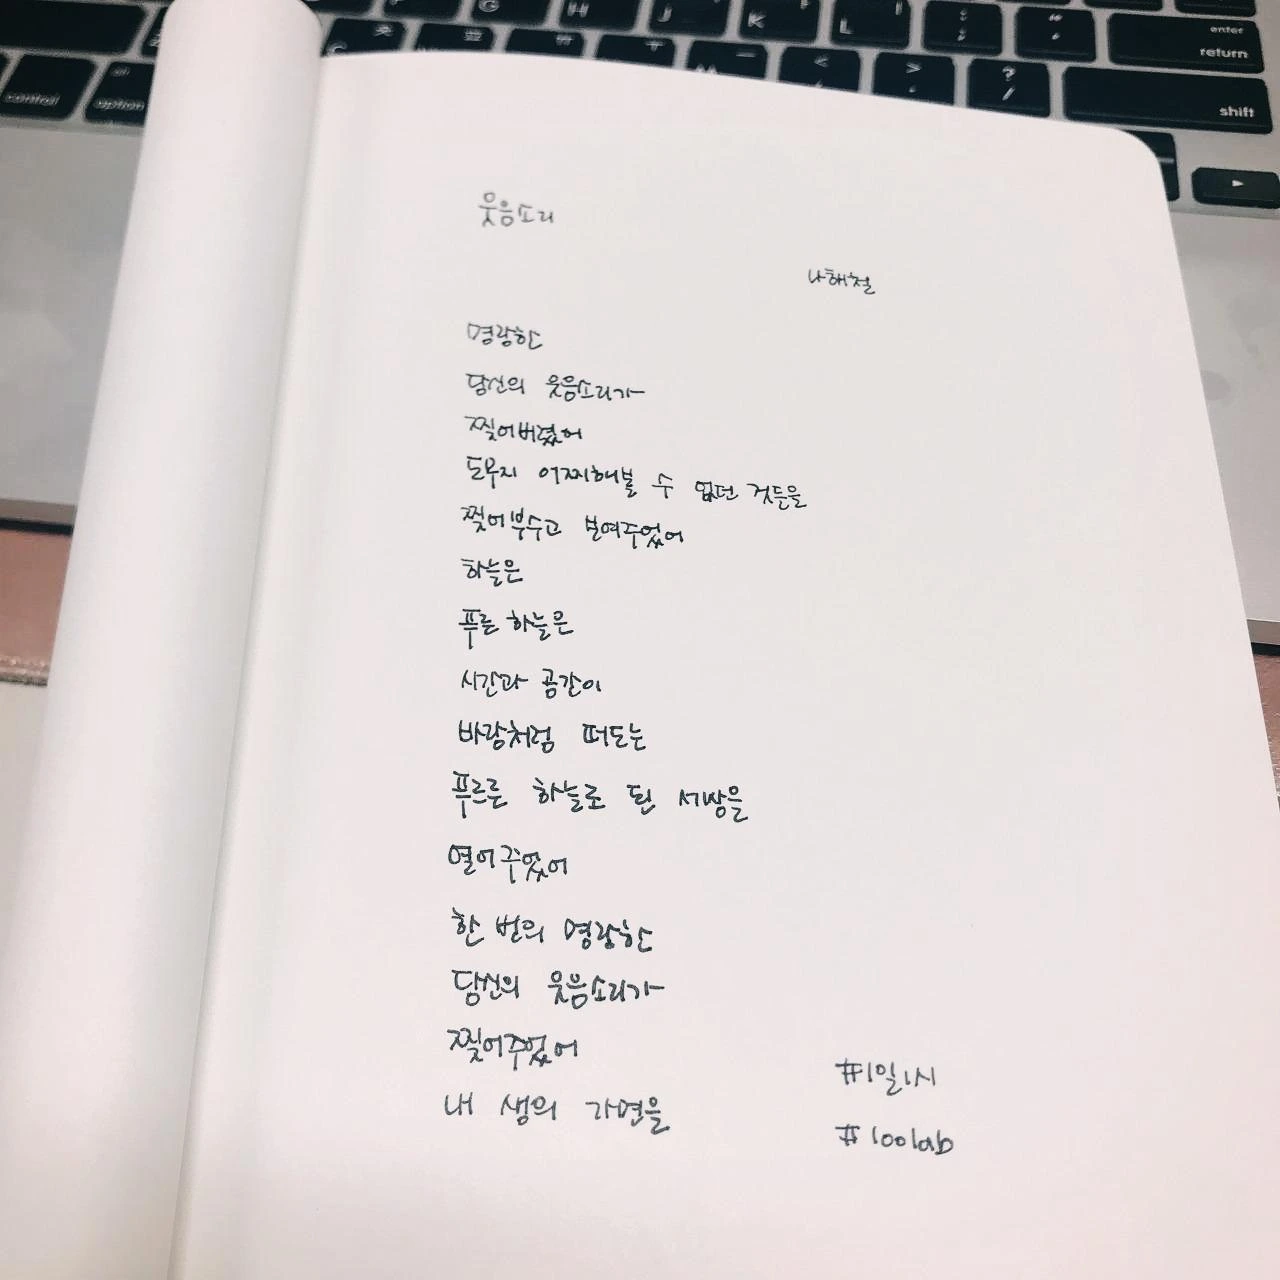 G H J K L ; : ' " enter
return
control alt
option < , > . ? / shift
웃음소리
나해철
명랑한
당신의 웃음소리가
찢어버렸어
도무지 어찌해볼 수 없던 것들을
찢어부수고 보여주었어
하늘은
푸른 하늘은
시간과 공간이
바람처럼 떠도는
푸르른 하늘로 된 세상을
열어주었어
한 번의 명랑한
당신의 웃음소리가
찢어주었어
내 생의 가면을
#1일1시
#100lab